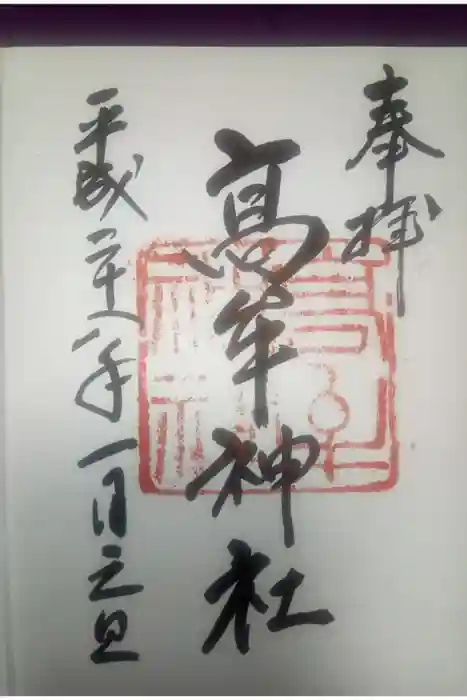 奉拝
高牟神社
平成二十八年一月元旦